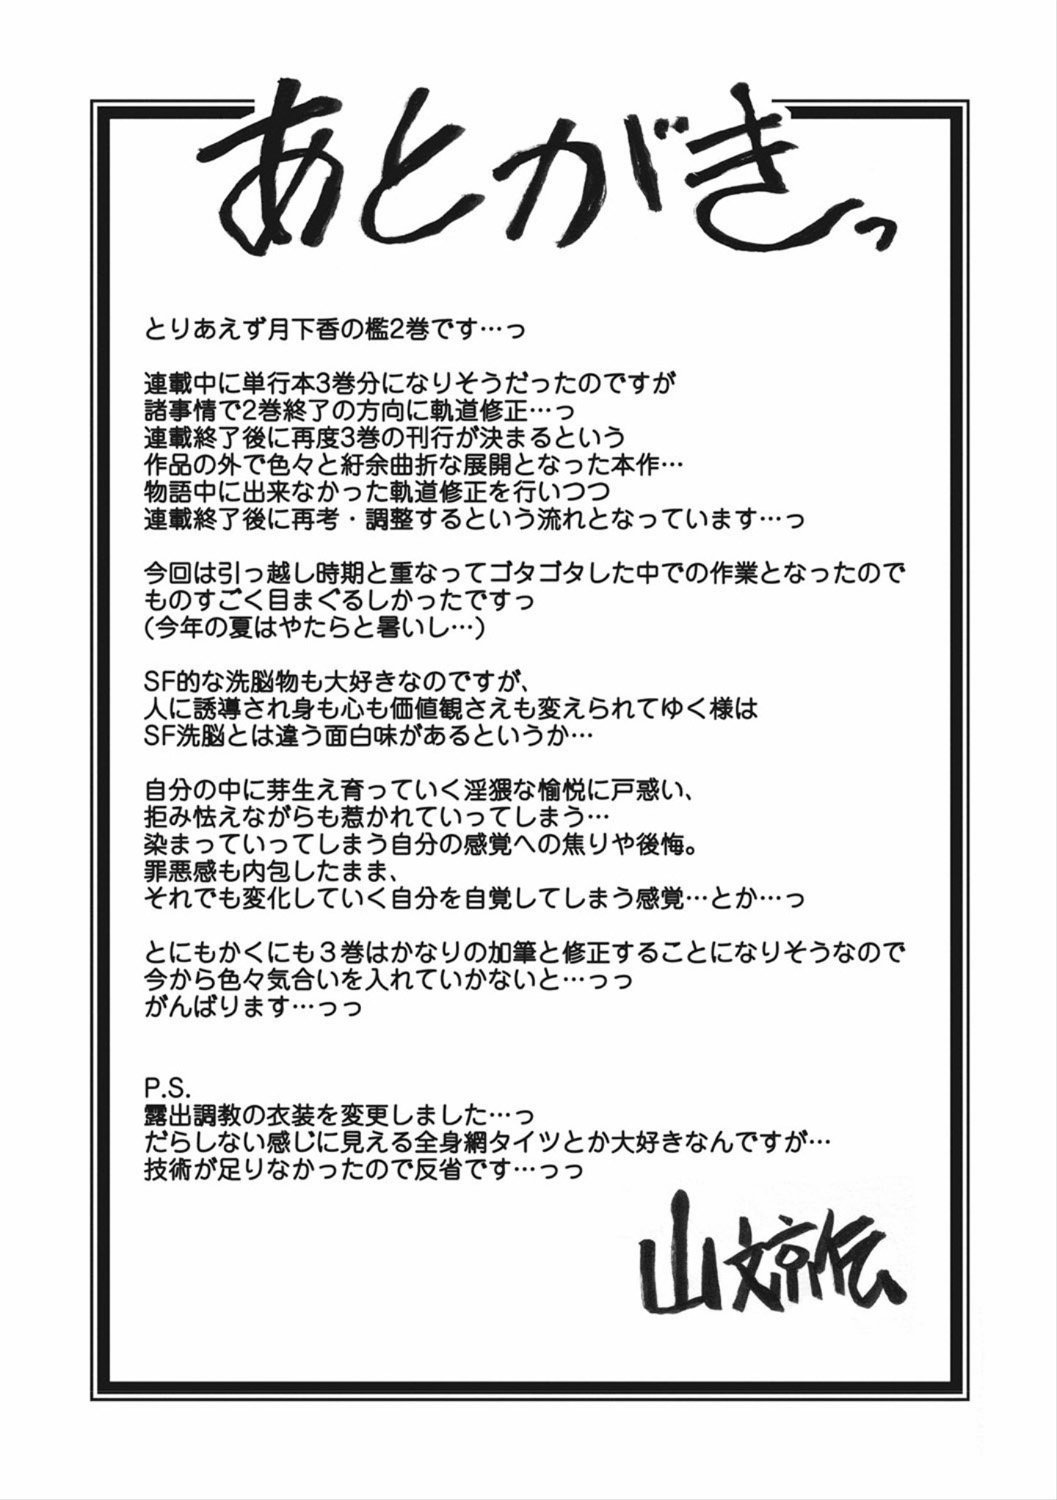 あとがきっ
とりあえず月下香の檻2巻です…っ
連載中に単行本3巻分になりそうだったのですが
諸事情で2巻終了の方向に軌道修正…っ
連載終了後に再度3巻の刊行が決まるという
作品の外で色々と紆余曲折な展開となった本作…
物語中に出来なかった軌道修正を行いつつ
連載終了後に再考・調整するという流れとなっています…っ
今回は引っ越し時期と重なってゴタゴタした中での作業となったので
ものすごく目まぐるしかったですっ
(今年の夏はやたらと暑いし…)
SF的な洗脳物も大好きなのですが、
人に誘導され身も心も価値観さえも変えられてゆく様は
SF洗脳とは違う面白味があるというか…
自分の中に芽生え育っていく淫猥な愉悦に戸惑い、
拒み怯えながらも惹かれていってしまう…
染まっていってしまう自分の感覚への焦りや後悔。
罪悪感も内包したまま、
それでも変化していく自分を自覚してしまう感覚…とか…っ
とにもかくにも３巻はかなりの加筆と修正することになりそうなので
今から色々気合いを入れていかないと…っっ
がんばります…っっ
P.S.
露出調教の衣装を変更しました…っ
だらしない感じに見える全身網タイツとか大好きなんですが…
技術が足りなかったので反省です…っっ
山文京伝